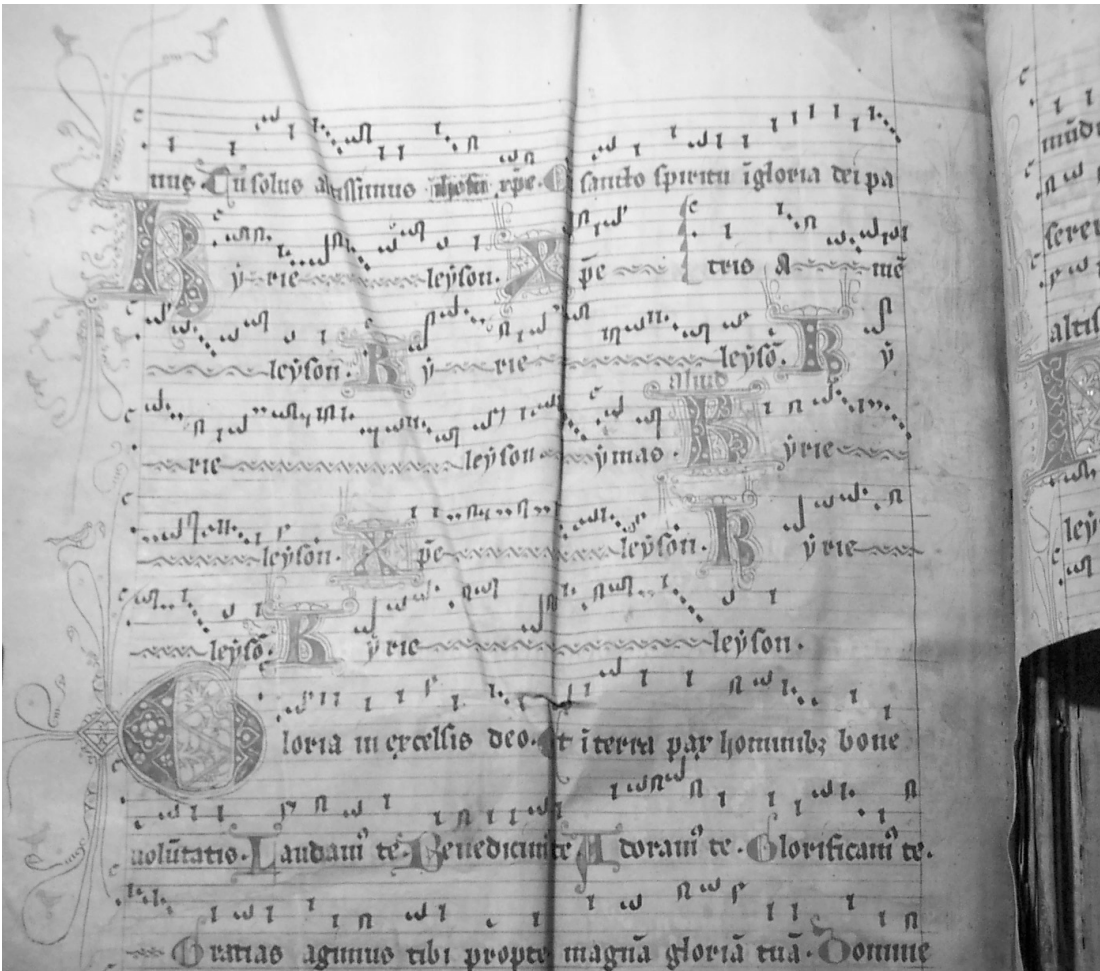 mus. Cū solus altissimus ihesu xp̄e. C sancto spiritu ī gloria dei pa
Kẏrie leẏson. Xp̄e tris A mē
leẏson. Kẏrie leẏsō. Kẏ
aliud
rie leẏson ẏmas. Kẏrie
leẏson. Xp̄e leẏson. Kẏrie
leẏsō. Kẏrie leẏson.
Gloria in excelsis deo. Et ī terra pax hominibꝫ bone
uolūtatis. Laudamꝰ te. Benedicimꝰ te Adoramꝰ te. Glorificamꝰ te.
Gratias agimus tibi propte magnā gloriā tuā. Domine
mūdi
altis
leẏ